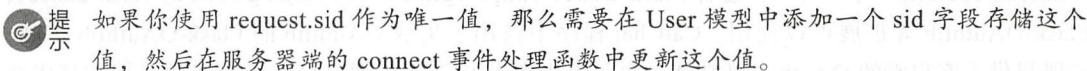 提示 如果你使用 request.sid 作为唯一值，那么需要在 User 模型中添加一个 sid 字段存储这个
值，然后在服务器端的 connect 事件处理函数中更新这个值。